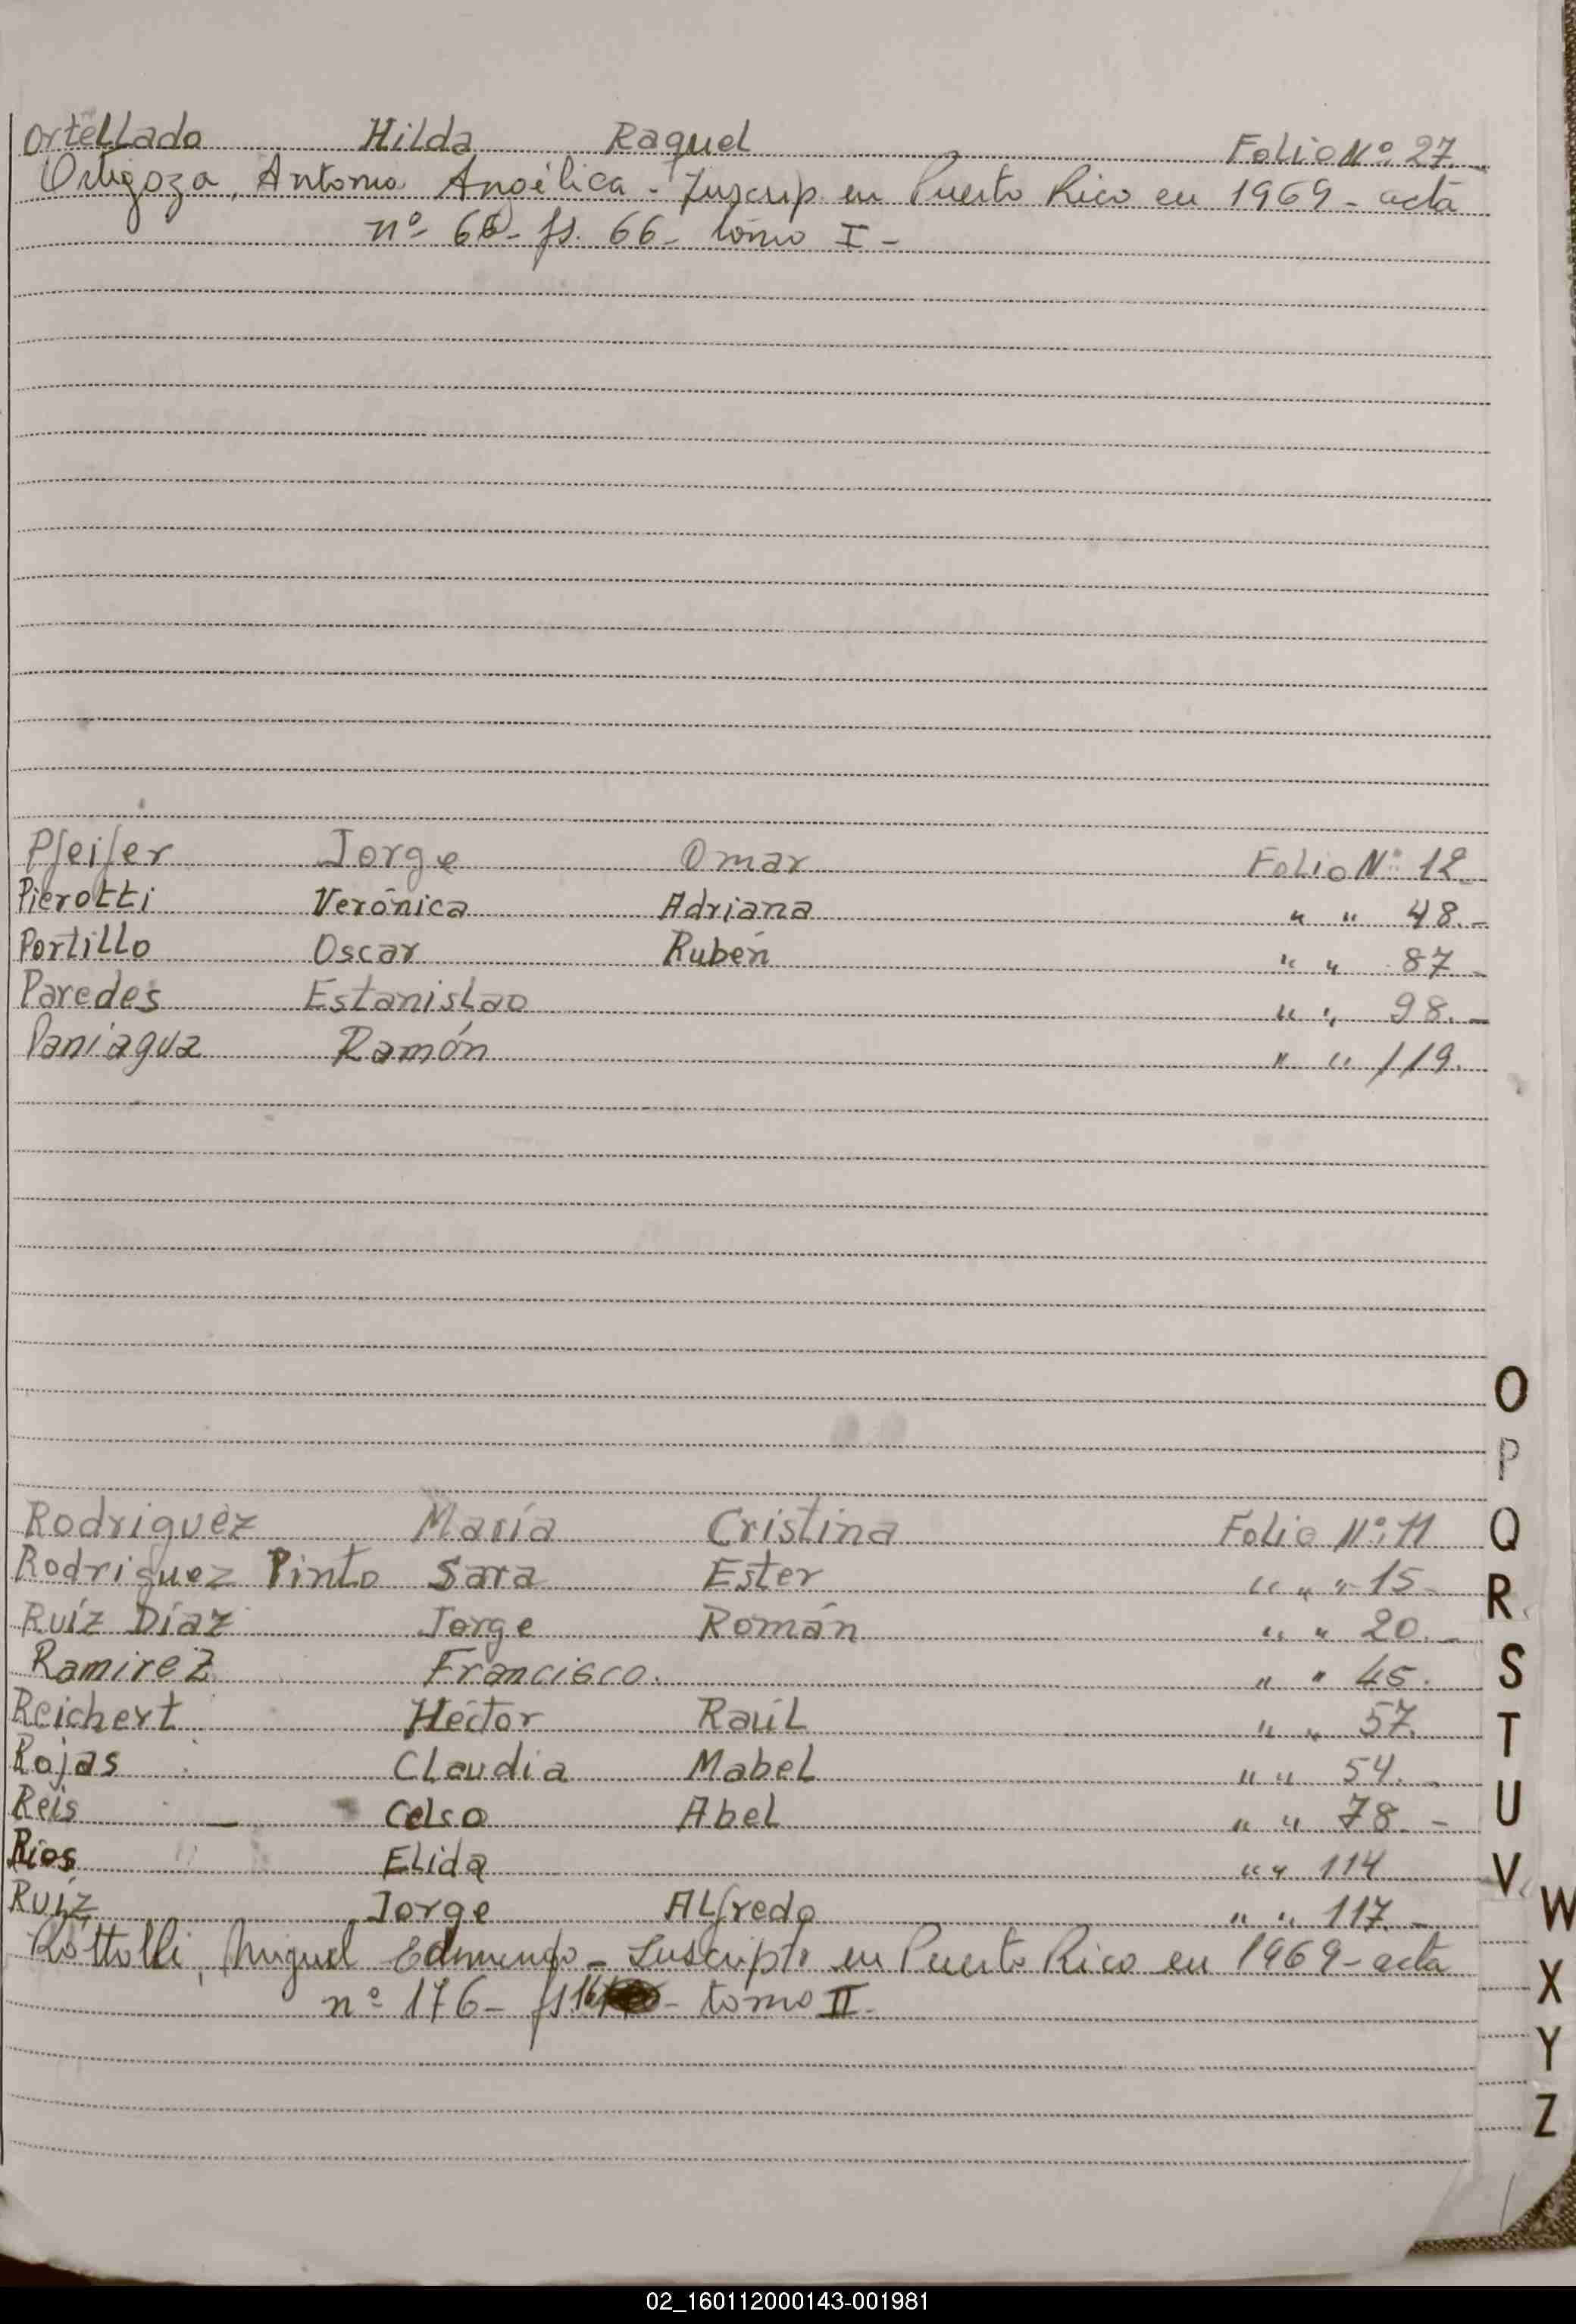 Ortellado Hilda Raquel Folio Nº 27.
Ortigoza, Antonia Angélica - Inscrip. en Puerto Rico en 1969 - acta
nº 66 - fs. 66 - tomo I -
Pfeifer Jorge Omar Folio Nº: 12.
Pierotti Verónica Adriana " " 48.-
Portillo Oscar Rubén " " 87 -
Paredes Estanislao " " 98.-
Paniagua Ramón " " 119.
Rodriguez María Cristina Folio Nº: 11
Rodriguez Pinto Sara Ester " " " 15 -
Ruíz Díaz Jorge Román " " 20.-
Ramirez Francisco. " " 45.
Reichert Héctor Raúl " " 57.
Rojas Claudia Mabel " " 54. -
Reis - Celso Abel " " 78. -
Rios Elida " " 114
Ruíz Jorge Alfredo " " 117. -
Miguel Edmundo - Inscripto en Puerto Rico en 1969 - acta
nº 176 - fs - tomo II -
O
P
Q
R
S
T
U
V
W
X
Y
Z
02_160112000143-001981